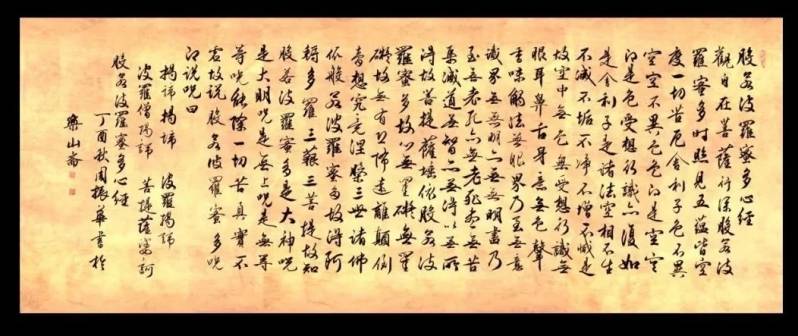 般若波羅蜜多心經
觀自在菩薩行深般若波
羅蜜多時照見五蘊皆空
度一切苦厄舍利子色不異
空空不異色色即是空空
即是色受想行識亦復如
是舍利子是諸法空相不生
不滅不垢不淨不增不減是
故空中無色無受想行識無
眼耳鼻舌身意無色聲
香味觸法無眼界乃至無意
識界無無明亦無無明盡乃
至無老死亦無老死盡無苦
集滅道無智亦無得以無所
得故菩提薩埵依般若波
羅蜜多故心無罣礙無罣
礙故無有恐怖遠離顛倒
夢想究竟涅槃三世諸佛
依般若波羅蜜多故得阿
耨多羅三藐三菩提故知
般若波羅蜜多是大神咒
是大明咒是無上咒是無等
等咒能除一切苦真實不
虛故說般若波羅蜜多咒
即說咒曰
揭諦揭諦 波羅揭諦
波羅僧揭諦 菩提薩婆訶
般若波羅蜜多心經
丁酉秋周振華書於
樂山齋